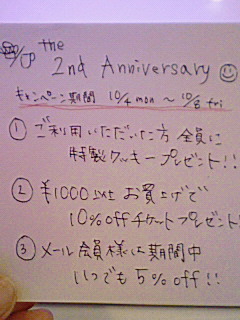 the
2nd Anniversary
キャンペーン期間 10/4 mon 〜 10/8 fri
① ご利用いただいた方 全員に
特製クッキープレゼント!!
② ¥1000以上お買上げで
10%offチケットプレゼント!
③ メール会員様に期間中
いつでも5%off!!